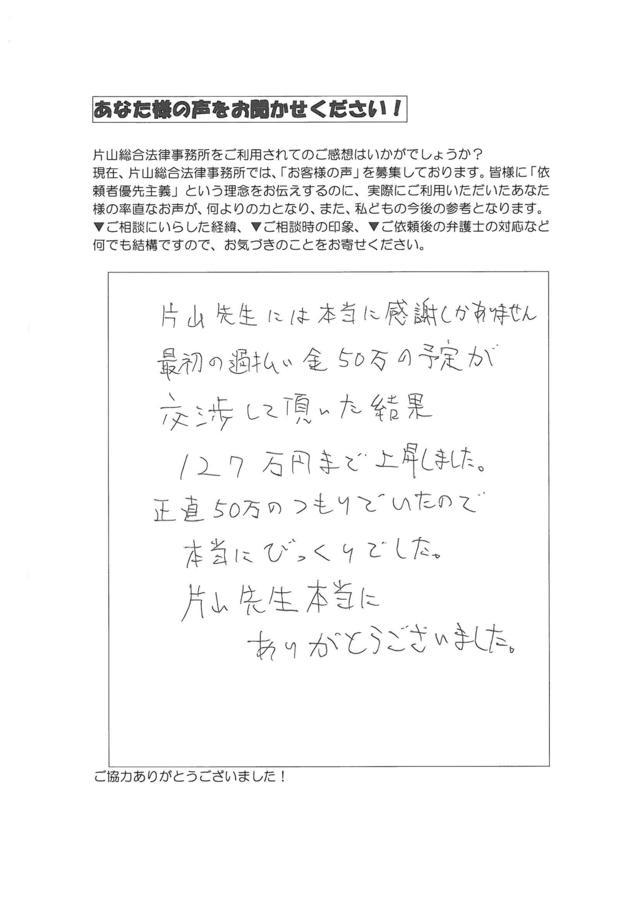 あなた様の声をお聞かせください！
片山総合法律事務所をご利用されてのご感想はいかがでしょうか？
現在、片山総合法律事務所では、「お客様の声」を募集しております。皆様に「依
頼者優先主義」という理念をお伝えするのに、実際にご利用いただいたあなた
様の率直なお声が、何よりの力となり、また、私どもの今後の参考となります。
▼ご相談にいらした経緯、▼ご相談時の印象、▼ご依頼後の弁護士の対応など
何でも結構ですので、お気づきのことをお寄せください。
片山先生には本当に感謝しかありません
最初の過払い金50万の予定が
交渉して頂いた結果
127万円まで上昇しました。
正直50万のつもりでいたので
本当にびっくりでした。
片山先生本当に
ありがとうございました。
ご協力ありがとうございました！